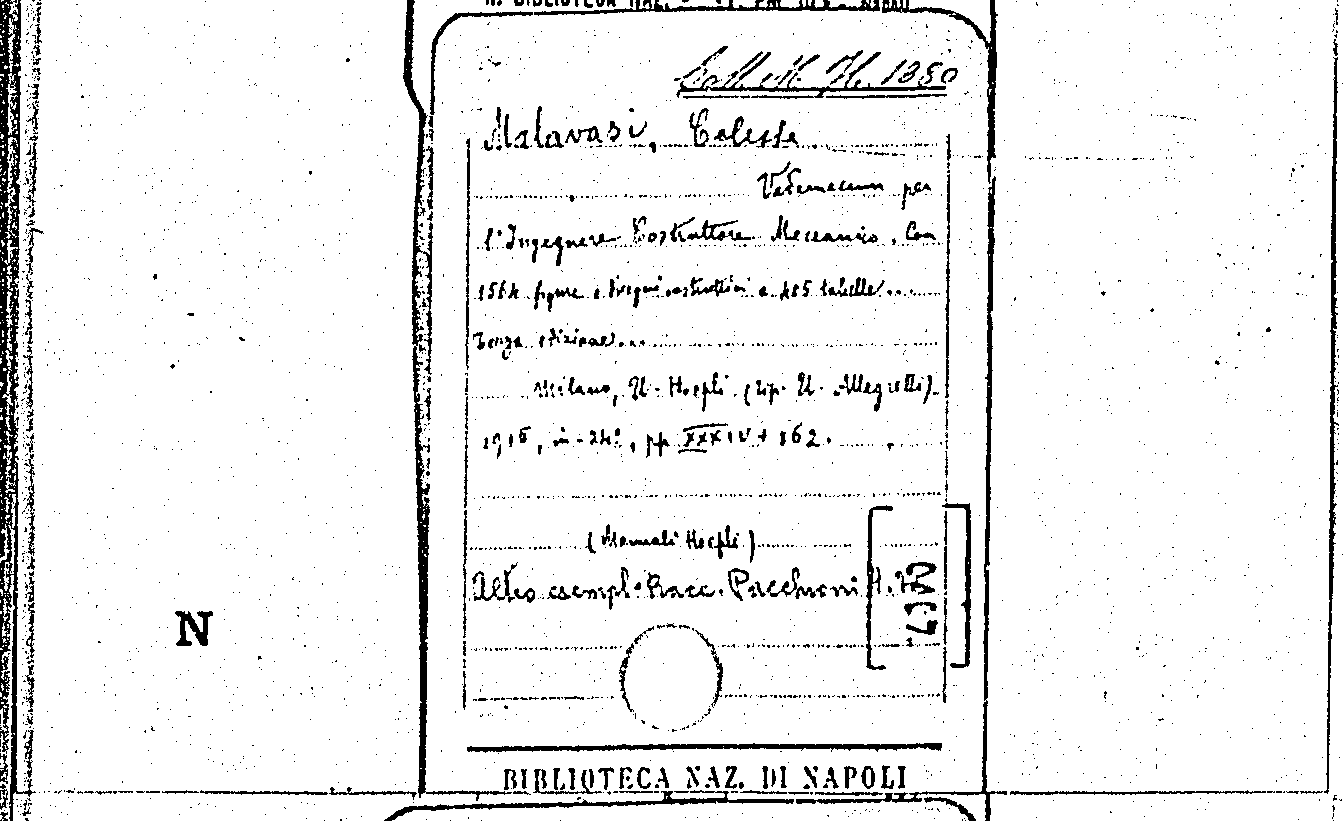 Coll. M. H. 1380
Malavasi, Celeste
Vademecum per
l'Ingegnere Costruttore Meccanico. Con
1564 figure e disegni costruttivi e 405 tabelle...
Terza edizione...
Milano, U. Hoepli (tip. U. Allegretti).
in-24°, pp. XXXIV + 862.
(Manuali Hoepli)
Altro esempl. Racc. Pacchioni H.
N
BIBLIOTECA NAZ. DI NAPOLI